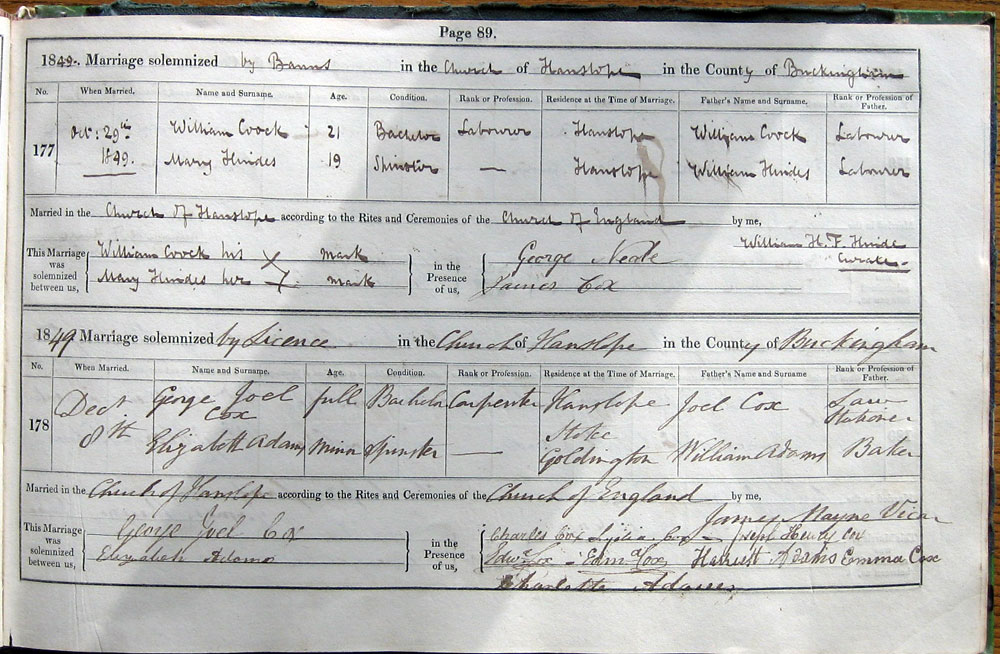 Page 89.
1849. Marriage solemnized by Banns in the Church of Hanslope in the County of Buckingham
No. When Married. Name and Surname. Age. Condition. Rank or Profession. Residence at the Time of Marriage. Father's Name and Surname. Rank or Profession of Father.
177 Oct: 29th 1849. William Coock 21 Bachelor Labourer Hanslope William Coock Labourer
Mary Hindes 19 Spinster — Hanslope William Hindes Labourer
Married in the Church of Hanslope according to the Rites and Ceremonies of the Church of England by me,
William H. F. Hinde
Curate.
This Marriage was solemnized between us, William Coock his X mark in the Presence of us, George Neale
Mary Hindes her X mark James Cox
1849 Marriage solemnized by Licence in the Church of Hanslope in the County of Buckingham
No. When Married. Name and Surname. Age. Condition. Rank or Profession. Residence at the Time of Marriage. Father's Name and Surname Rank or Profession of Father.
178 Decr 8th George Joel Cox full Bachelor Carpenter Hanslope Joel Cox Law Stationer
Elizabeth Adams Minor Spinster — Stoke Goldington William Adams Baker
Married in the Church of Hanslope according to the Rites and Ceremonies of the Church of England by me,
James Mayne Vicar
This Marriage was solemnized between us, George Joel Cox in the Presence of us, Charles Cox Lydia Cox Henry Cox
Elizabeth Adams Edwd Cox - Cox Harriet Adams Emma Cox
Charlotte Adams